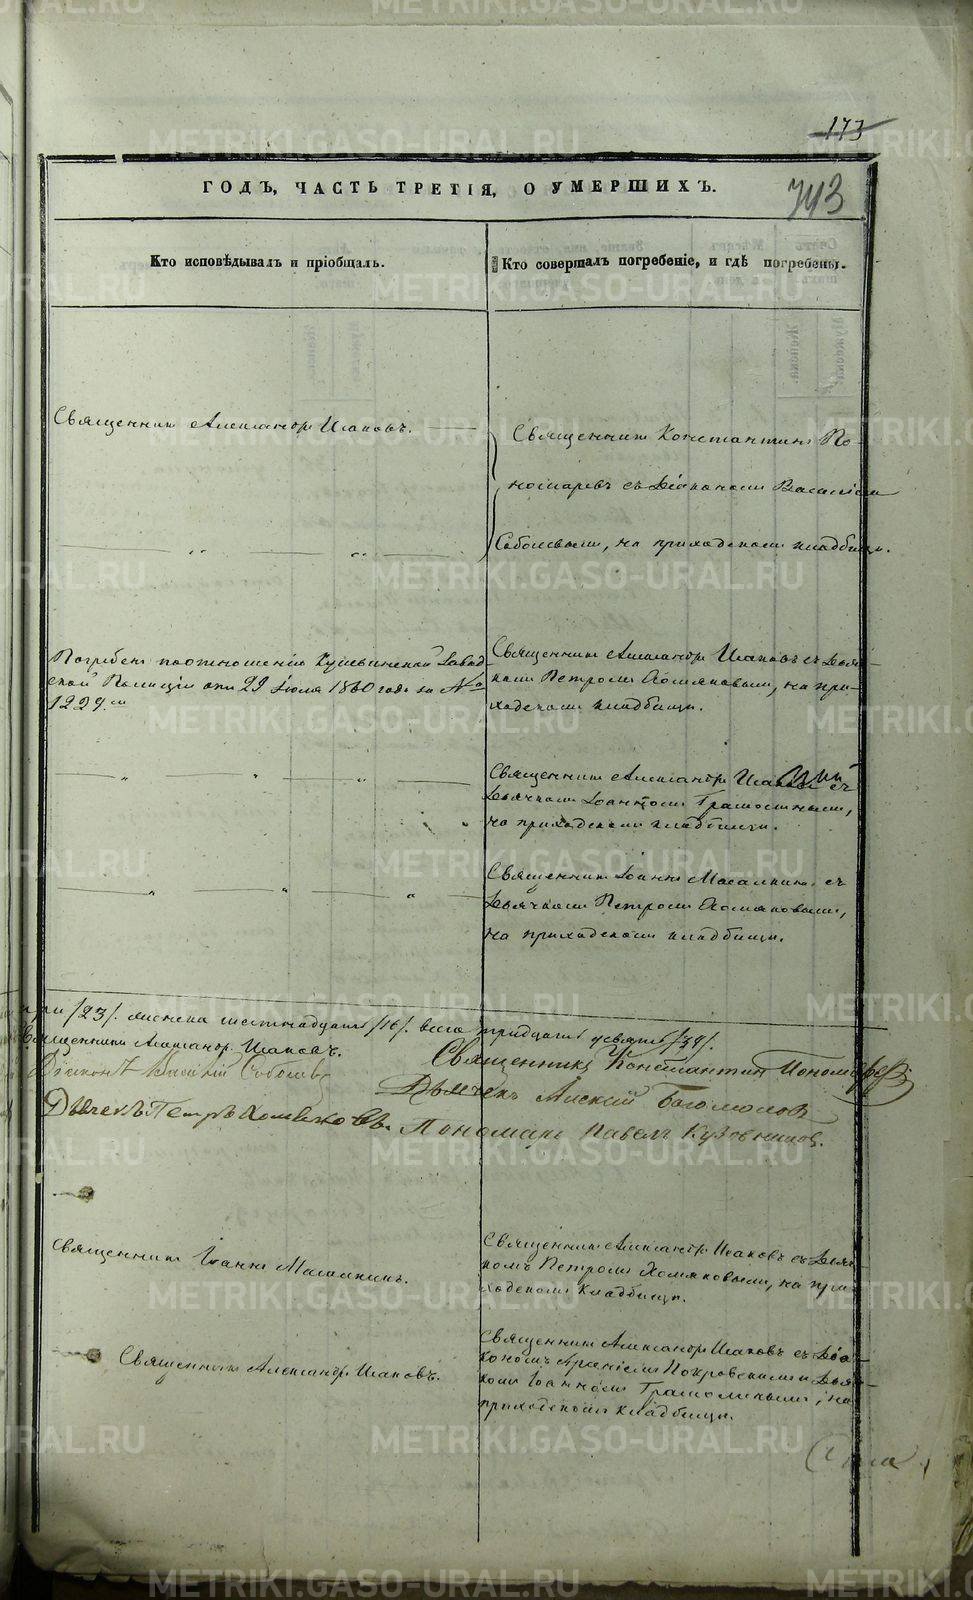 173
743
ГОДЪ, ЧАСТЬ ТРЕТІЯ, О УМЕРШИХЪ.
Кто исповѣдывалъ и пріобщалъ.
Кто совершалъ погребеніе, и гдѣ погребены.
Священникъ Александръ Исаковъ.
Священникъ Константинъ По-
номаревъ съ Діакономъ Василіемъ
Соболевымъ, на приходскомъ кладбищѣ.
Погребенъ по отношенію Кушвинской Завод-
ской Полиціи отъ 29 Іюля 1860 года за №
1229.мъ
Священникъ Александръ Исаковъ съ Дьяч-
комъ Петромъ Хомяковымъ, на при-
ходскомъ кладбищѣ.
Священникъ Александръ Исаковъ съ
Дьячкомъ Іоанномъ
на приходскомъ кладбищѣ.
Священникъ Іоаннъ съ
Дьячкомъ Петромъ Хомяковымъ,
на приходскомъ кладбищѣ.
три /23/. женска шестнадцать /16/. всего тридцать девять /39/.
Священникъ Александръ Исаковъ.
Священникъ Константинъ Пономаревъ
Діаконъ Василій Соболевъ
Дьячекъ Алексѣй Богомолов
Дьячекъ Петръ Хомяковъ.
Пономарь Павелъ Кузовников.
Священникъ Іоаннъ
Священникъ Александръ Исаковъ съ Дьяч-
комъ Петромъ Хомяковымъ, на при-
ходскомъ кладбищѣ.
Священникъ Александръ Исаковъ.
Священникъ Александръ Исаковъ съ Діа-
кономъ Покровскимъ и Дьяч-
комъ Іоанномъ на
приходскомъ кладбищѣ.
METRIKI.GASO-URAL.RU